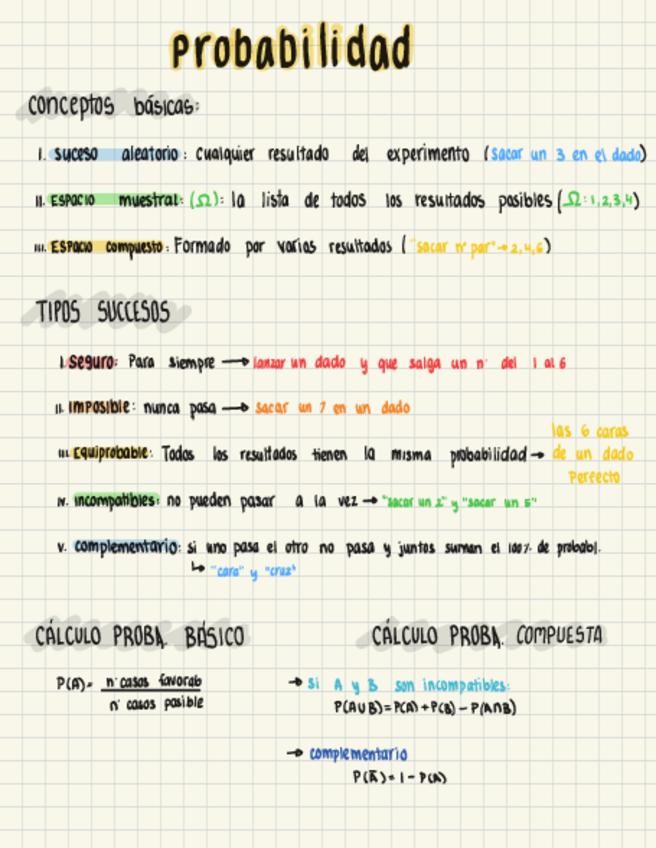 Probabilidad
conceptos básicas:
I. suceso aleatorio: cualquier resultado del experimento (sacar un 3 en el dado)
II. ESPACIO muestral: (Ω): la lista de todos los resultados posibles (Ω: 1,2,3,4)
III. ESPACIO compuesto: Formado por varios resultados ("sacar nº par" → 2,4,6)
TIPOS SUCCESOS
I. Seguro: Para siempre → lanzar un dado y que salga un nº del 1 al 6
II. Imposible: nunca pasa → sacar un 7 en un dado
III. Equiprobable: Todos los resultados tienen la misma probabilidad → las 6 caras
de un dado
Perfecto
IV. incompatibles: no pueden pasar a la vez → "sacar un 2" y "sacar un 5"
V. complementario: si uno pasa el otro no pasa y juntos suman el 100% de probabl.
↳ "cara" y "cruz"
CÁLCULO PROBA. BÁSICO
P(A)= nº casos favorab
nº casos posible
CÁLCULO PROBA. COMPUESTA
→ si A y B son incompatibles:
P(A∪B)=P(A)+P(B)-P(A∩B)
→ complementario
P(Ā)=1-P(A)